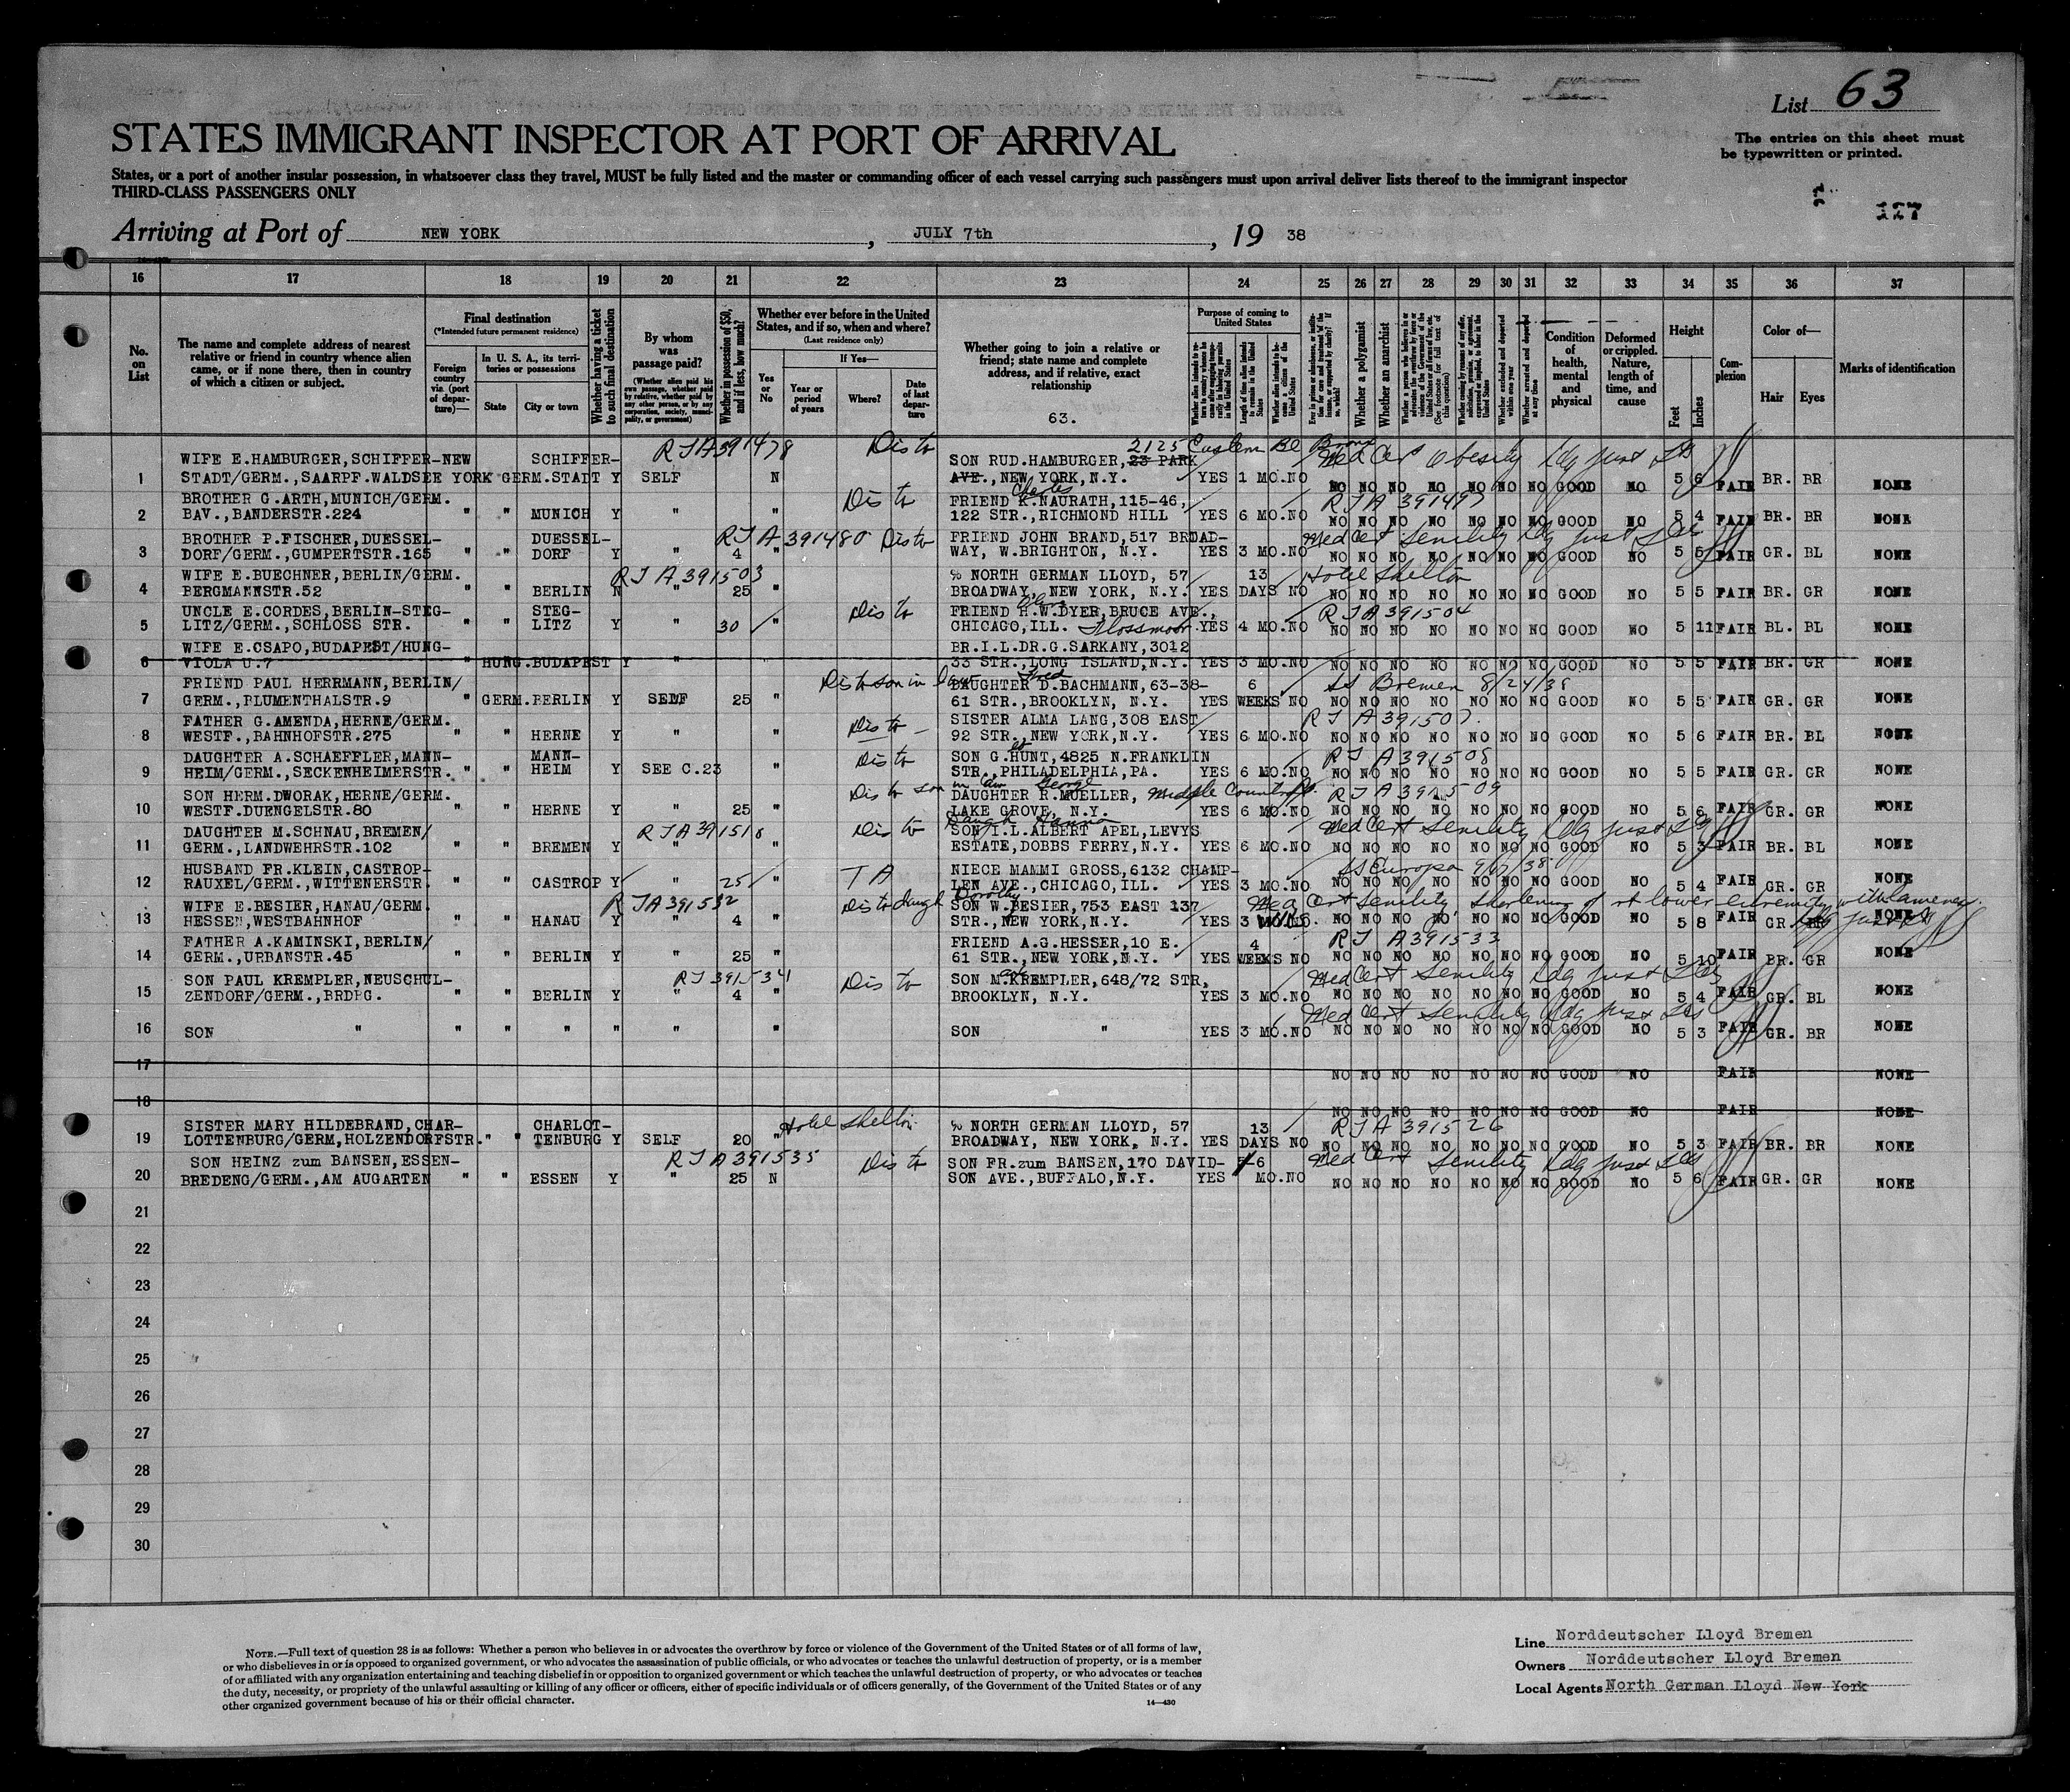 List 63
STATES IMMIGRANT INSPECTOR AT PORT OF ARRIVAL
The entries on this sheet must
be typewritten or printed.
States, or a port of another insular possession, in whatsoever class they travel, MUST be fully listed and the master or commanding officer of each vessel carrying such passengers must upon arrival deliver lists thereof to the immigrant inspector
THIRD-CLASS PASSENGERS ONLY
127
Arriving at Port of NEW YORK, JULY 7th, 19 38
16 17 18 19 20 21 22 23 24 25 26 27 28 29 30 31 32 33 34 35 36 37
No. on List
The name and complete address of nearest relative or friend in country whence alien came, or if none there, then in country of which a citizen or subject.
Final destination
(*Intended future permanent residence)
Foreign country via (port of departure)—
In U. S. A., its territories or possessions
State
City or town
Whether having a ticket to such final destination
By whom was passage paid?
(Whether alien paid his own passage, whether paid by relative, whether paid by any other person, or by any corporation, society, municipality, or government)
Whether in possession of $50, and if less, how much?
Whether ever before in the United States, and if so, when and where?
(Last residence only)
Yes or No
If Yes—
Year or period of years
Where?
Date of last departure
Whether going to join a relative or friend; state name and complete address, and if relative, exact relationship
63.
Purpose of coming to United States
Length of time alien intends to remain in the United States
Whether alien intends to become a citizen of the United States
Whether a polygamist
Whether an anarchist
(See footnote for full text of this question)
Whether excluded and deported within one year
Whether arrested and deported at any time
Condition of health, mental and physical
Deformed or crippled. Nature, length of time, and cause
Height
Feet
Inches
Complexion
Color of—
Hair
Eyes
Marks of identification
RTA 391478 Dis to 2125 Eastern Bl Bronx Med Cert Obesity
WIFE E.HAMBURGER,SCHIFFER-NEW SCHIFFER- SON RUD.HAMBURGER,23 PARK
1 STADT/GERM.,SAARPF.WALDSEE YORK GERM.STADT Y SELF N AVE.,NEW YORK,N.Y. YES 1 MO.NO NO NO NO NO NO NO NO GOOD NO 5 6 FAIR BR. BR NONE
BROTHER G.ARTH,MUNICH/GERM. Dis to Charles FRIEND K.NAURATH,115-46, RTA 391497
2 BAV.,BANDERSTR.224 " " MUNICH Y " " 122 STR.,RICHMOND HILL YES 6 MO.NO NO NO NO NO NO NO NO GOOD NO 5 4 FAIR BR. BR NONE
BROTHER P.FISCHER,DUESSEL- DUESSEL- RTA 391480 Dis to FRIEND JOHN BRAND,517 BROAD- Med Cert Senility
3 DORF/GERM.,GUMPERTSTR.165 " " DORF Y " 4 " WAY, W.BRIGHTON, N.Y. YES 3 MO.NO NO NO NO NO NO NO NO GOOD NO 5 5 FAIR GR. BL NONE
WIFE E.BUECHNER,BERLIN/GERM. RTA 391503 % NORTH GERMAN LLOYD, 57 13 Hotel Shelton
4 BERGMANNSTR.52 " " BERLIN N " 25 " BROADWAY, NEW YORK, N.Y. YES DAYS NO NO NO NO NO NO NO NO GOOD NO 5 5 FAIR BR. GR NONE
UNCLE E.CORDES,BERLIN-STEG- STEG- Dis to FRIEND H.W.DYER,BRUCE AVE., RTA 391504
5 LITZ/GERM.,SCHLOSS STR. " " LITZ Y " 30 " CHICAGO,ILL. Flossmoor YES 4 MO.NO NO NO NO NO NO NO NO GOOD NO 5 11 FAIR BL. BL NONE
WIFE E.CSAPO,BUDAPEST/HUNG- BR.I.L.DR.G.SARKANY,3012
6 VIOLA U.7 " HUNG.BUDAPEST Y " 33 STR.,LONG ISLAND,N.Y. YES 3 MO.NO NO NO NO NO NO NO NO GOOD NO 5 5 FAIR BR. GR NONE
FRIEND PAUL HERRMANN,BERLIN/ Dis to son in law Fred DAUGHTER D.BACHMANN,63-38- 6 SS Bremen 8/24/38
7 GERM.,PLUMENTHALSTR.9 " GERM.BERLIN Y SELF 25 " 61 STR.,BROOKLYN, N.Y. YES WEEKS NO NO NO NO NO NO NO NO GOOD NO 5 5 FAIR GR. GR NONE
FATHER G.AMENDA,HERNE/GERM. Dis to SISTER ALMA LANG,308 EAST RT A391507.
8 WESTF.,BAHNHOFSTR.275 " " HERNE Y " " 92 STR.,NEW YORK,N.Y. YES 6 MO.NO NO NO NO NO NO NO NO GOOD NO 5 6 FAIR BR. BL NONE
DAUGHTER A.SCHAEFFLER,MANN- MANN- Dis to SON G.HUNT,4825 N.FRANKLIN RT A391508
9 HEIM/GERM.,SECKENHEIMERSTR. " " HEIM Y SEE C.23 " STR.,PHILADELPHIA,PA. YES 6 MO.NO NO NO NO NO NO NO NO GOOD NO 5 5 FAIR GR. GR NONE
SON HERM.DWORAK,HERNE/GERM. Dis to son in law George DAUGHTER R.MUELLER, Middle Country Rd. RT A391509
10 WESTF.DUENGELSTR.80 " " HERNE Y " 25 " LAKE GROVE, N.Y. YES 6 MO.NO NO NO NO NO NO NO NO GOOD NO 5 6 FAIR GR. GR NONE
DAUGHTER M.SCHNAU,BREMEN/ RTA 391518 Dis to SON I.L.ALBERT APEL,LEVYS Med Cert Senility
11 GERM.,LANDWEHRSTR.102 " " BREMEN Y " " ESTATE,DOBBS FERRY,N.Y. YES 6 MO.NO NO NO NO NO NO NO NO GOOD NO 5 3 FAIR BR. BL NONE
HUSBAND FR.KLEIN,CASTROP- TA NIECE MAMMI GROSS,6132 CHAMP- SS Europa 9/7/38
12 RAUXEL/GERM.,WITTENERSTR. " " CASTROP Y " 25 " LEN AVE.,CHICAGO,ILL. YES 3 MO.NO NO NO NO NO NO NO NO GOOD NO 5 4 FAIR GR. GR NONE
WIFE E.BESIER,HANAU/GERM. RTA 391532 Dis to daugh Dorothy SON W.BESIER,753 EAST 137 Med Cert Senility shortening of rt lower extremity with lameness
13 HESSEN,WESTBAHNHOF " " HANAU Y " 4 " STR.,NEW YORK,N.Y. YES 3 NO NO NO NO NO NO NO GOOD NO 5 8 FAIR GR. NONE
FATHER A.KAMINSKI,BERLIN/ FRIEND A.G.HESSER,10 E. 4 RT A391533
14 GERM.,URBANSTR.45 " " BERLIN Y " 25 " 61 STR.,NEW YORK,N.Y. YES WEEKS NO NO NO NO NO NO NO NO GOOD NO 5 10 FAIR BR. GR NONE
SON PAUL KREMPLER,NEUSCHUL- RT 391534 Dis to SON M.KREMPLER,648/72 STR, Med Cert Senility
15 ZENDORF/GERM.,BRDBG. " " BERLIN Y " 4 " BROOKLYN, N.Y. YES 3 MO.NO NO NO NO NO NO NO NO GOOD NO 5 4 FAIR GR. BL NONE
Med Cert Senility
16 SON " " " " " " " SON " YES 3 MO.NO NO NO NO NO NO NO NO GOOD NO 5 3 FAIR GR. BR NONE
17 NO NO NO NO NO NO NO GOOD NO FAIR NONE
18 NO NO NO NO NO NO NO GOOD NO FAIR NONE
SISTER MARY HILDEBRAND,CHAR- CHARLOT- Hotel Shelton % NORTH GERMAN LLOYD, 57 13 RTA 391526
19 LOTTENBURG/GERM,HOLZENDORFSTR." " TENBURG Y SELF 20 " BROADWAY, NEW YORK, N.Y. YES DAYS NO NO NO NO NO NO NO NO GOOD NO 5 3 FAIR BR. BR NONE
SON HEINZ zum BANSEN,ESSEN- RTA 391535 Dis to SON FR.zum BANSEN,170 DAVID- 5-6 Med Cert Senility
20 BREDENG/GERM.,AM AUGARTEN " " ESSEN Y " 25 N SON AVE.,BUFFALO,N.Y. YES MO.NO NO NO NO NO NO NO NO GOOD NO 5 6 FAIR GR. GR NONE
21
22
23
24
25
26
27
28
29
30
NOTE.—Full text of question 28 is as follows: Whether a person who believes in or advocates the overthrow by force or violence of the Government of the United States or of all forms of law,
or who disbelieves in or is opposed to organized government, or who advocates the assassination of public officials, or who advocates or teaches the unlawful destruction of property, or is a member
of or affiliated with any organization entertaining and teaching disbelief in or opposition to organized government or which teaches the unlawful destruction of property, or who advocates or teaches
the duty, necessity, or propriety of the unlawful assaulting or killing of any officer or officers, either of specific individuals or of officers generally, of the Government of the United States or of any
other organized government because of his or their official character.
14—430
Line Norddeutscher Lloyd Bremen
Owners Norddeutscher Lloyd Bremen
Local Agents North German Lloyd New York